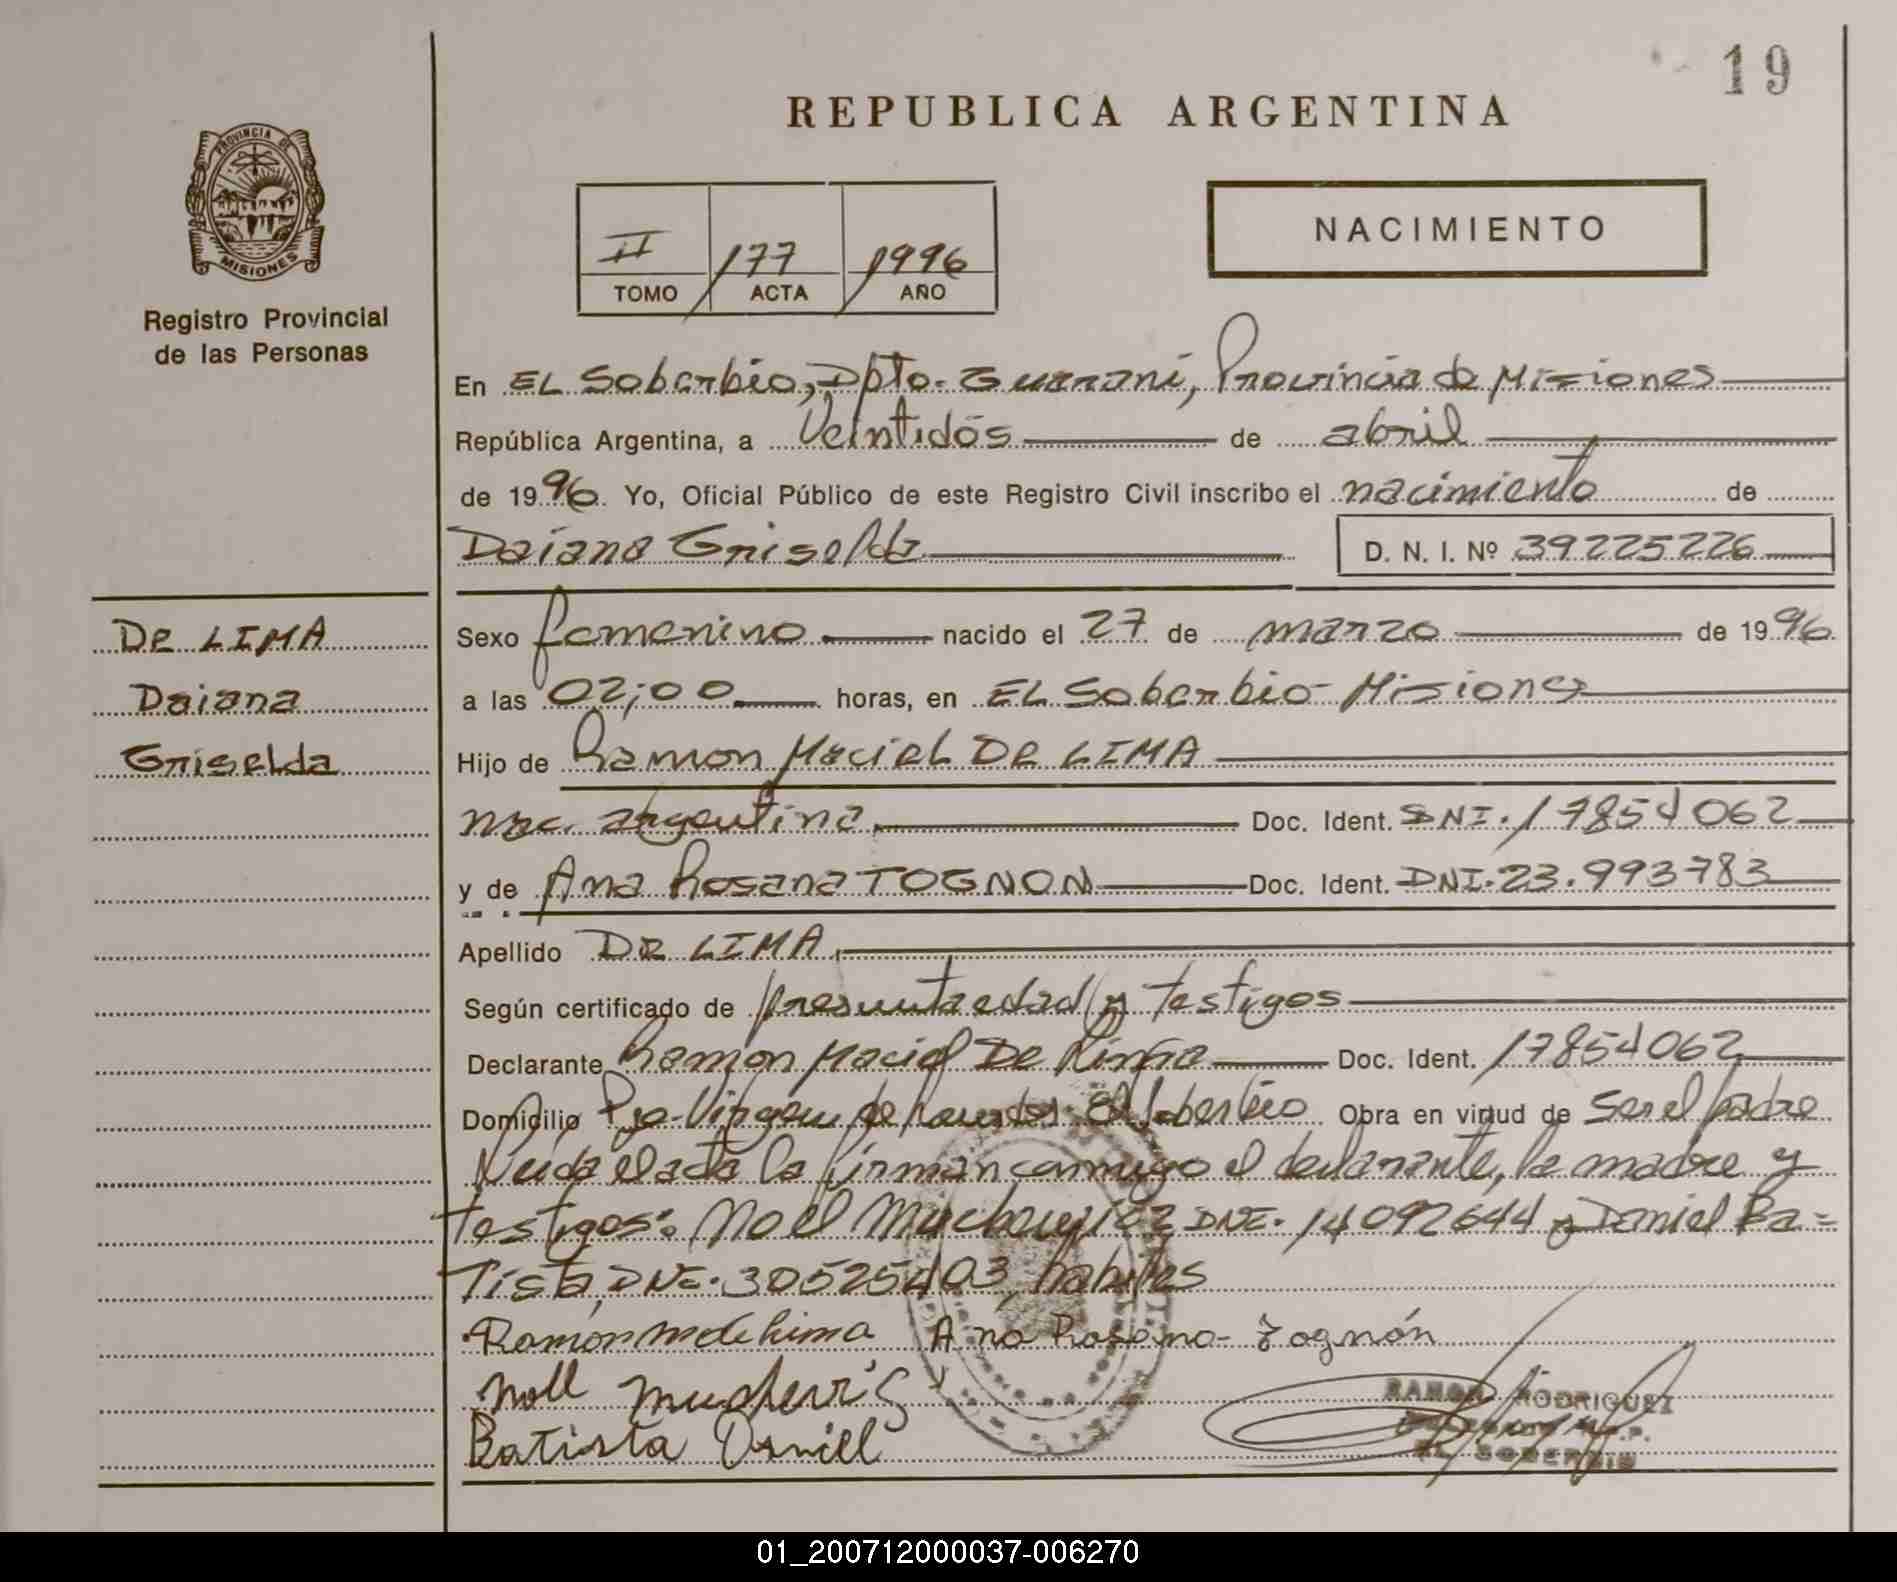 19
REPUBLICA ARGENTINA
PROVINCIA DE
MISIONES
Registro Provincial
de las Personas
II 177 1996
TOMO ACTA AÑO
NACIMIENTO
En EL Soberbio, Dpto. Guaraní, Provincia de Misiones
República Argentina, a Veintidós de abril
de 1996. Yo, Oficial Público de este Registro Civil inscribo el nacimiento de
Daiana Griselda D. N. I. Nº 39225226
DE LIMA
Daiana
Griselda
Sexo femenino nacido el 27 de marzo de 1996
a las 02;00 horas, en EL Soberbio - Misiones
Hijo de Ramon Maciel DE LIMA
nac. argentina Doc. Ident. DNI. 17854062
y de Ana Rosana TOGNON Doc. Ident. DNI. 23.993783
Apellido DE LIMA
Según certificado de presunta edad y testigos
Declarante Ramon Maciel De Lima Doc. Ident. 17854062
Domicilio Pje. Virgen de Lourdes - El Soberbio Obra en virtud de ser el padre
Leida el acta la firman conmigo el declarante, la madre y
testigos: Noll DNI. 14092644 y Daniel Ba=
tista, DNI. 30525403, habiles
Ramón M de Lima Ana Rosana Tognón
Noll
Batista Daniel
RAMON RODRIGUEZ
EL SOBERBIO
01_200712000037-006270